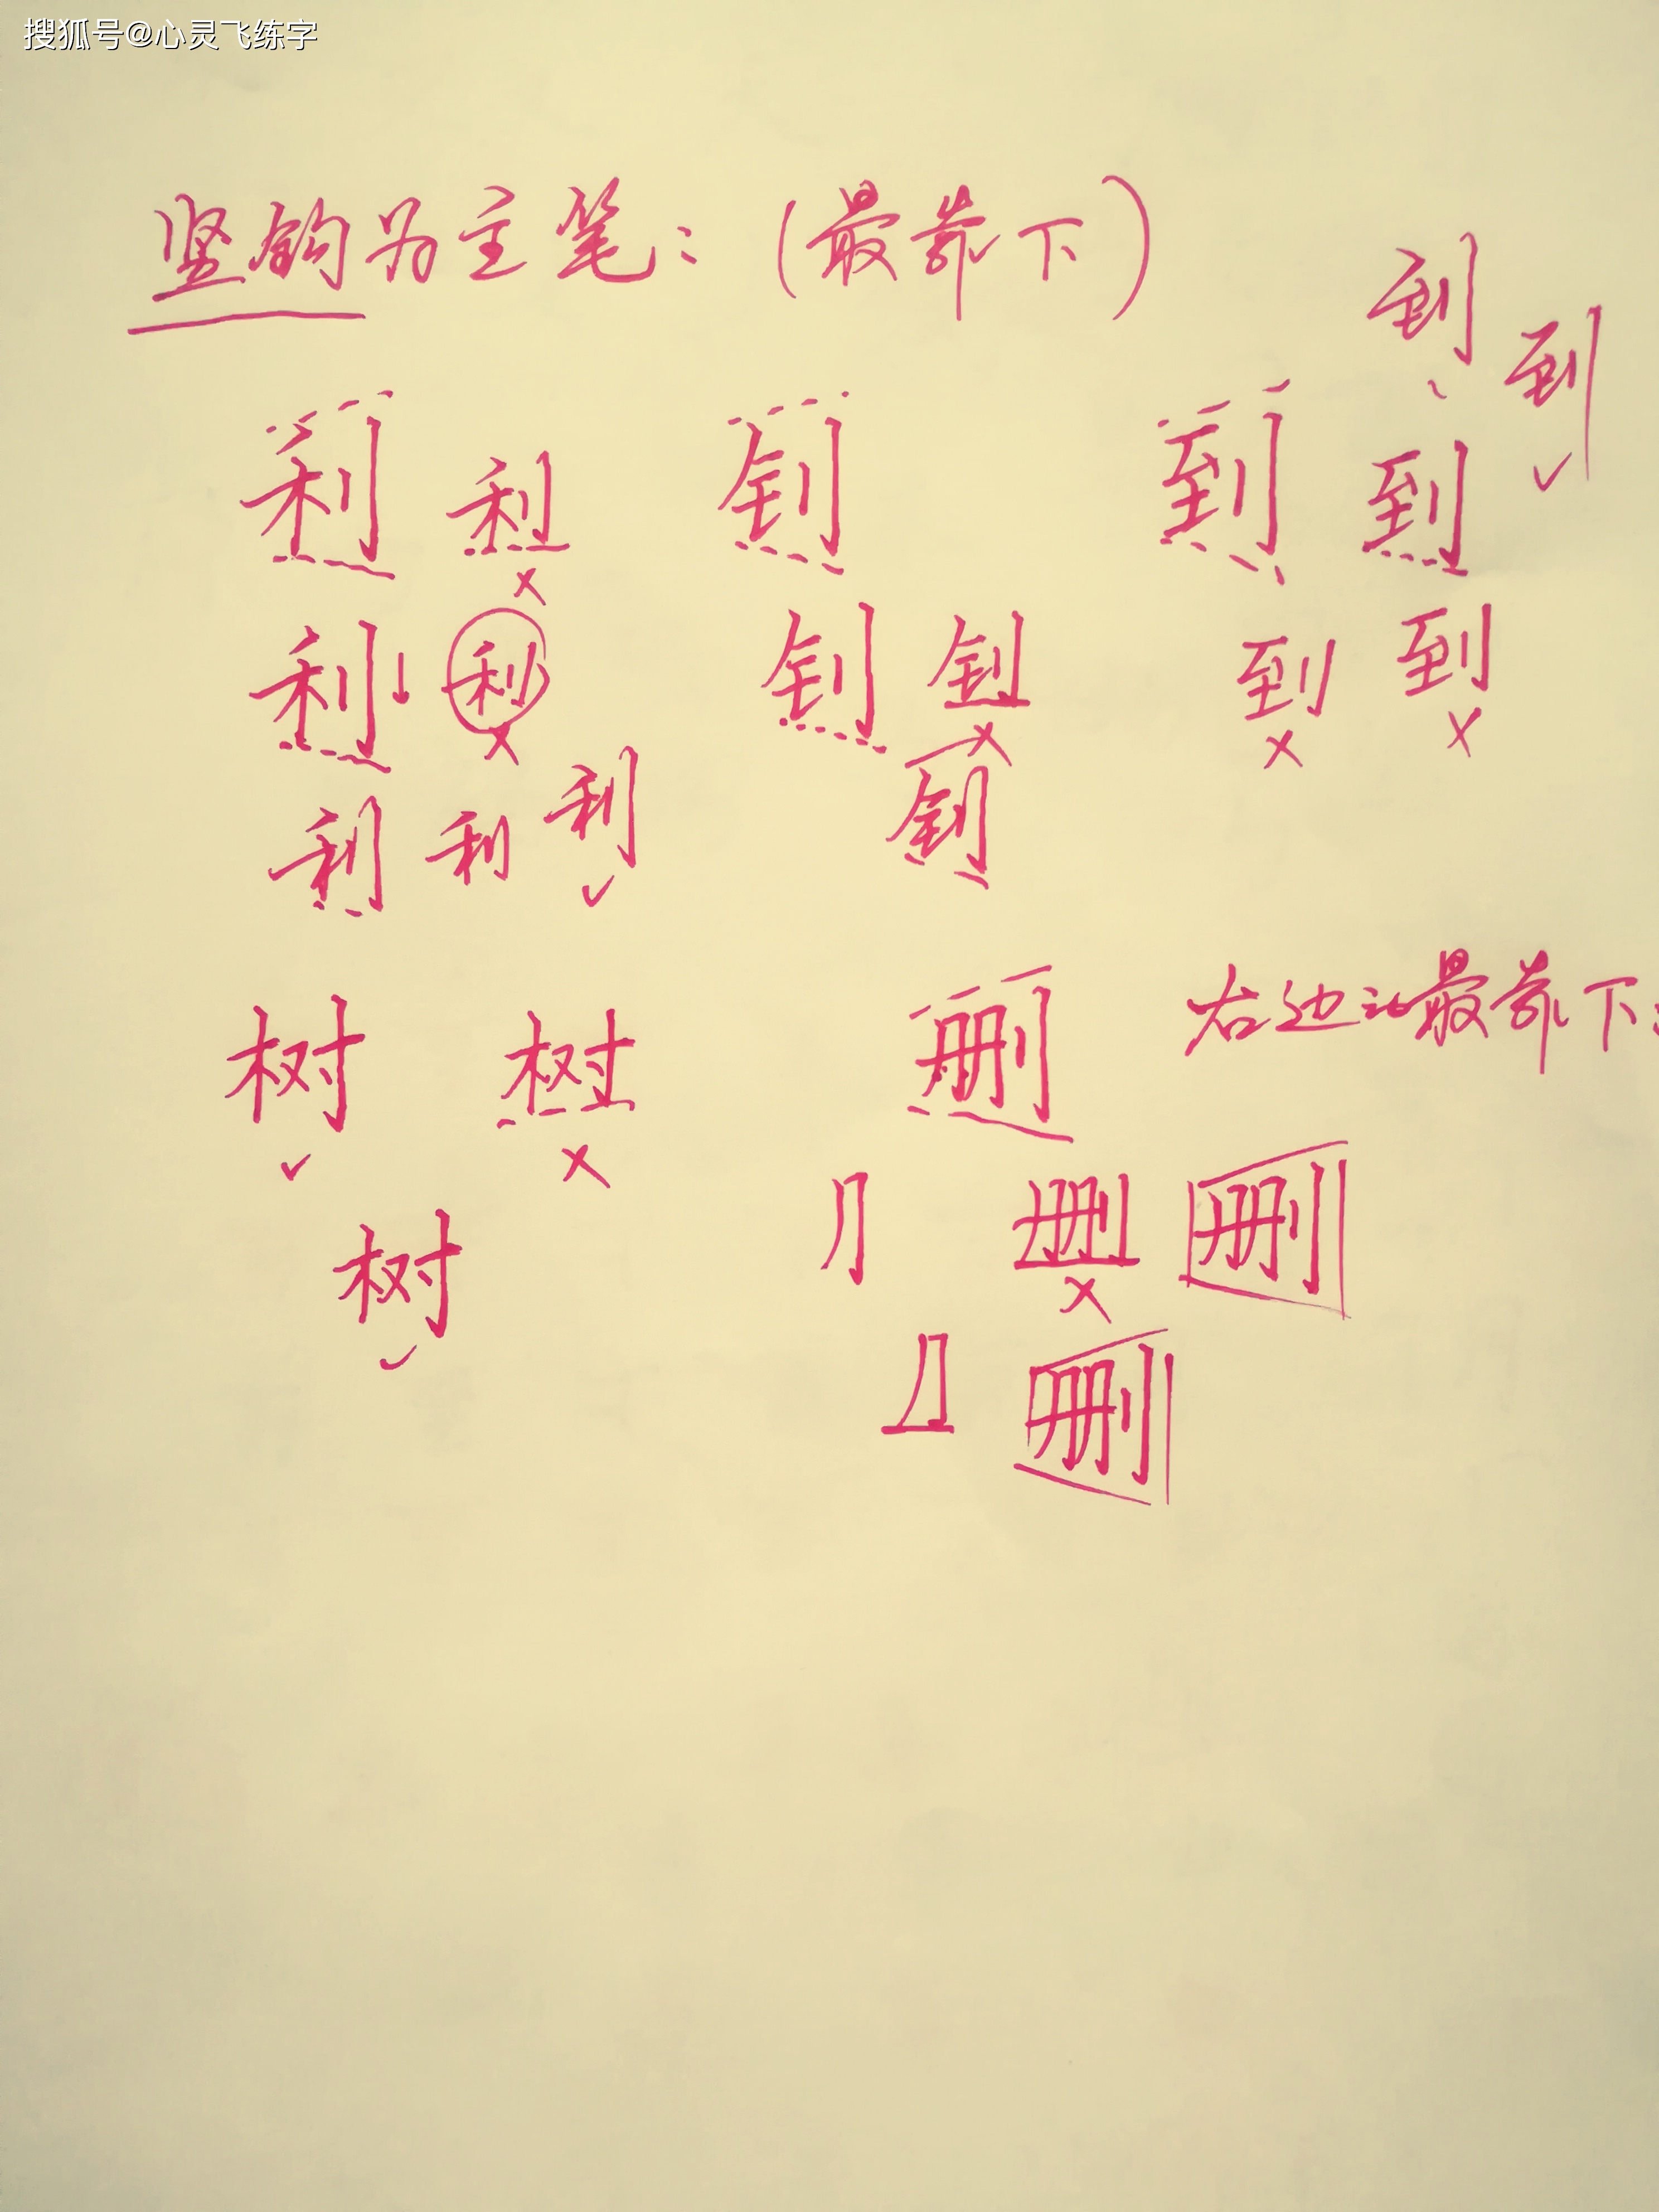 搜狐号@心灵飞练字
竖钩为主笔：（最靠下）
到
到
利 利 钊 到 到
利 利 钊 钊 到 到
利 利 利 钊
树 树 删 右边比最靠下：
删 删
树
删